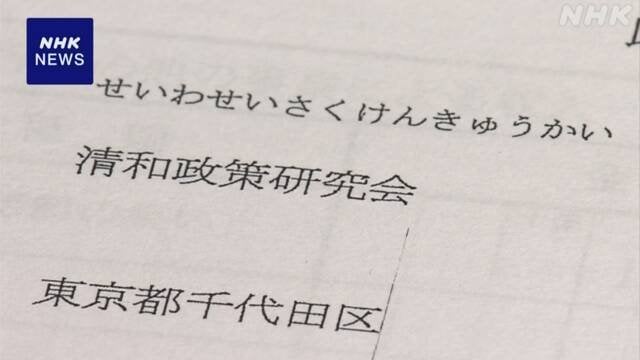 NHK
NEWS
NHK
せいわせいさくけんきゅうかい
清和政策研究会
東京都千代田区